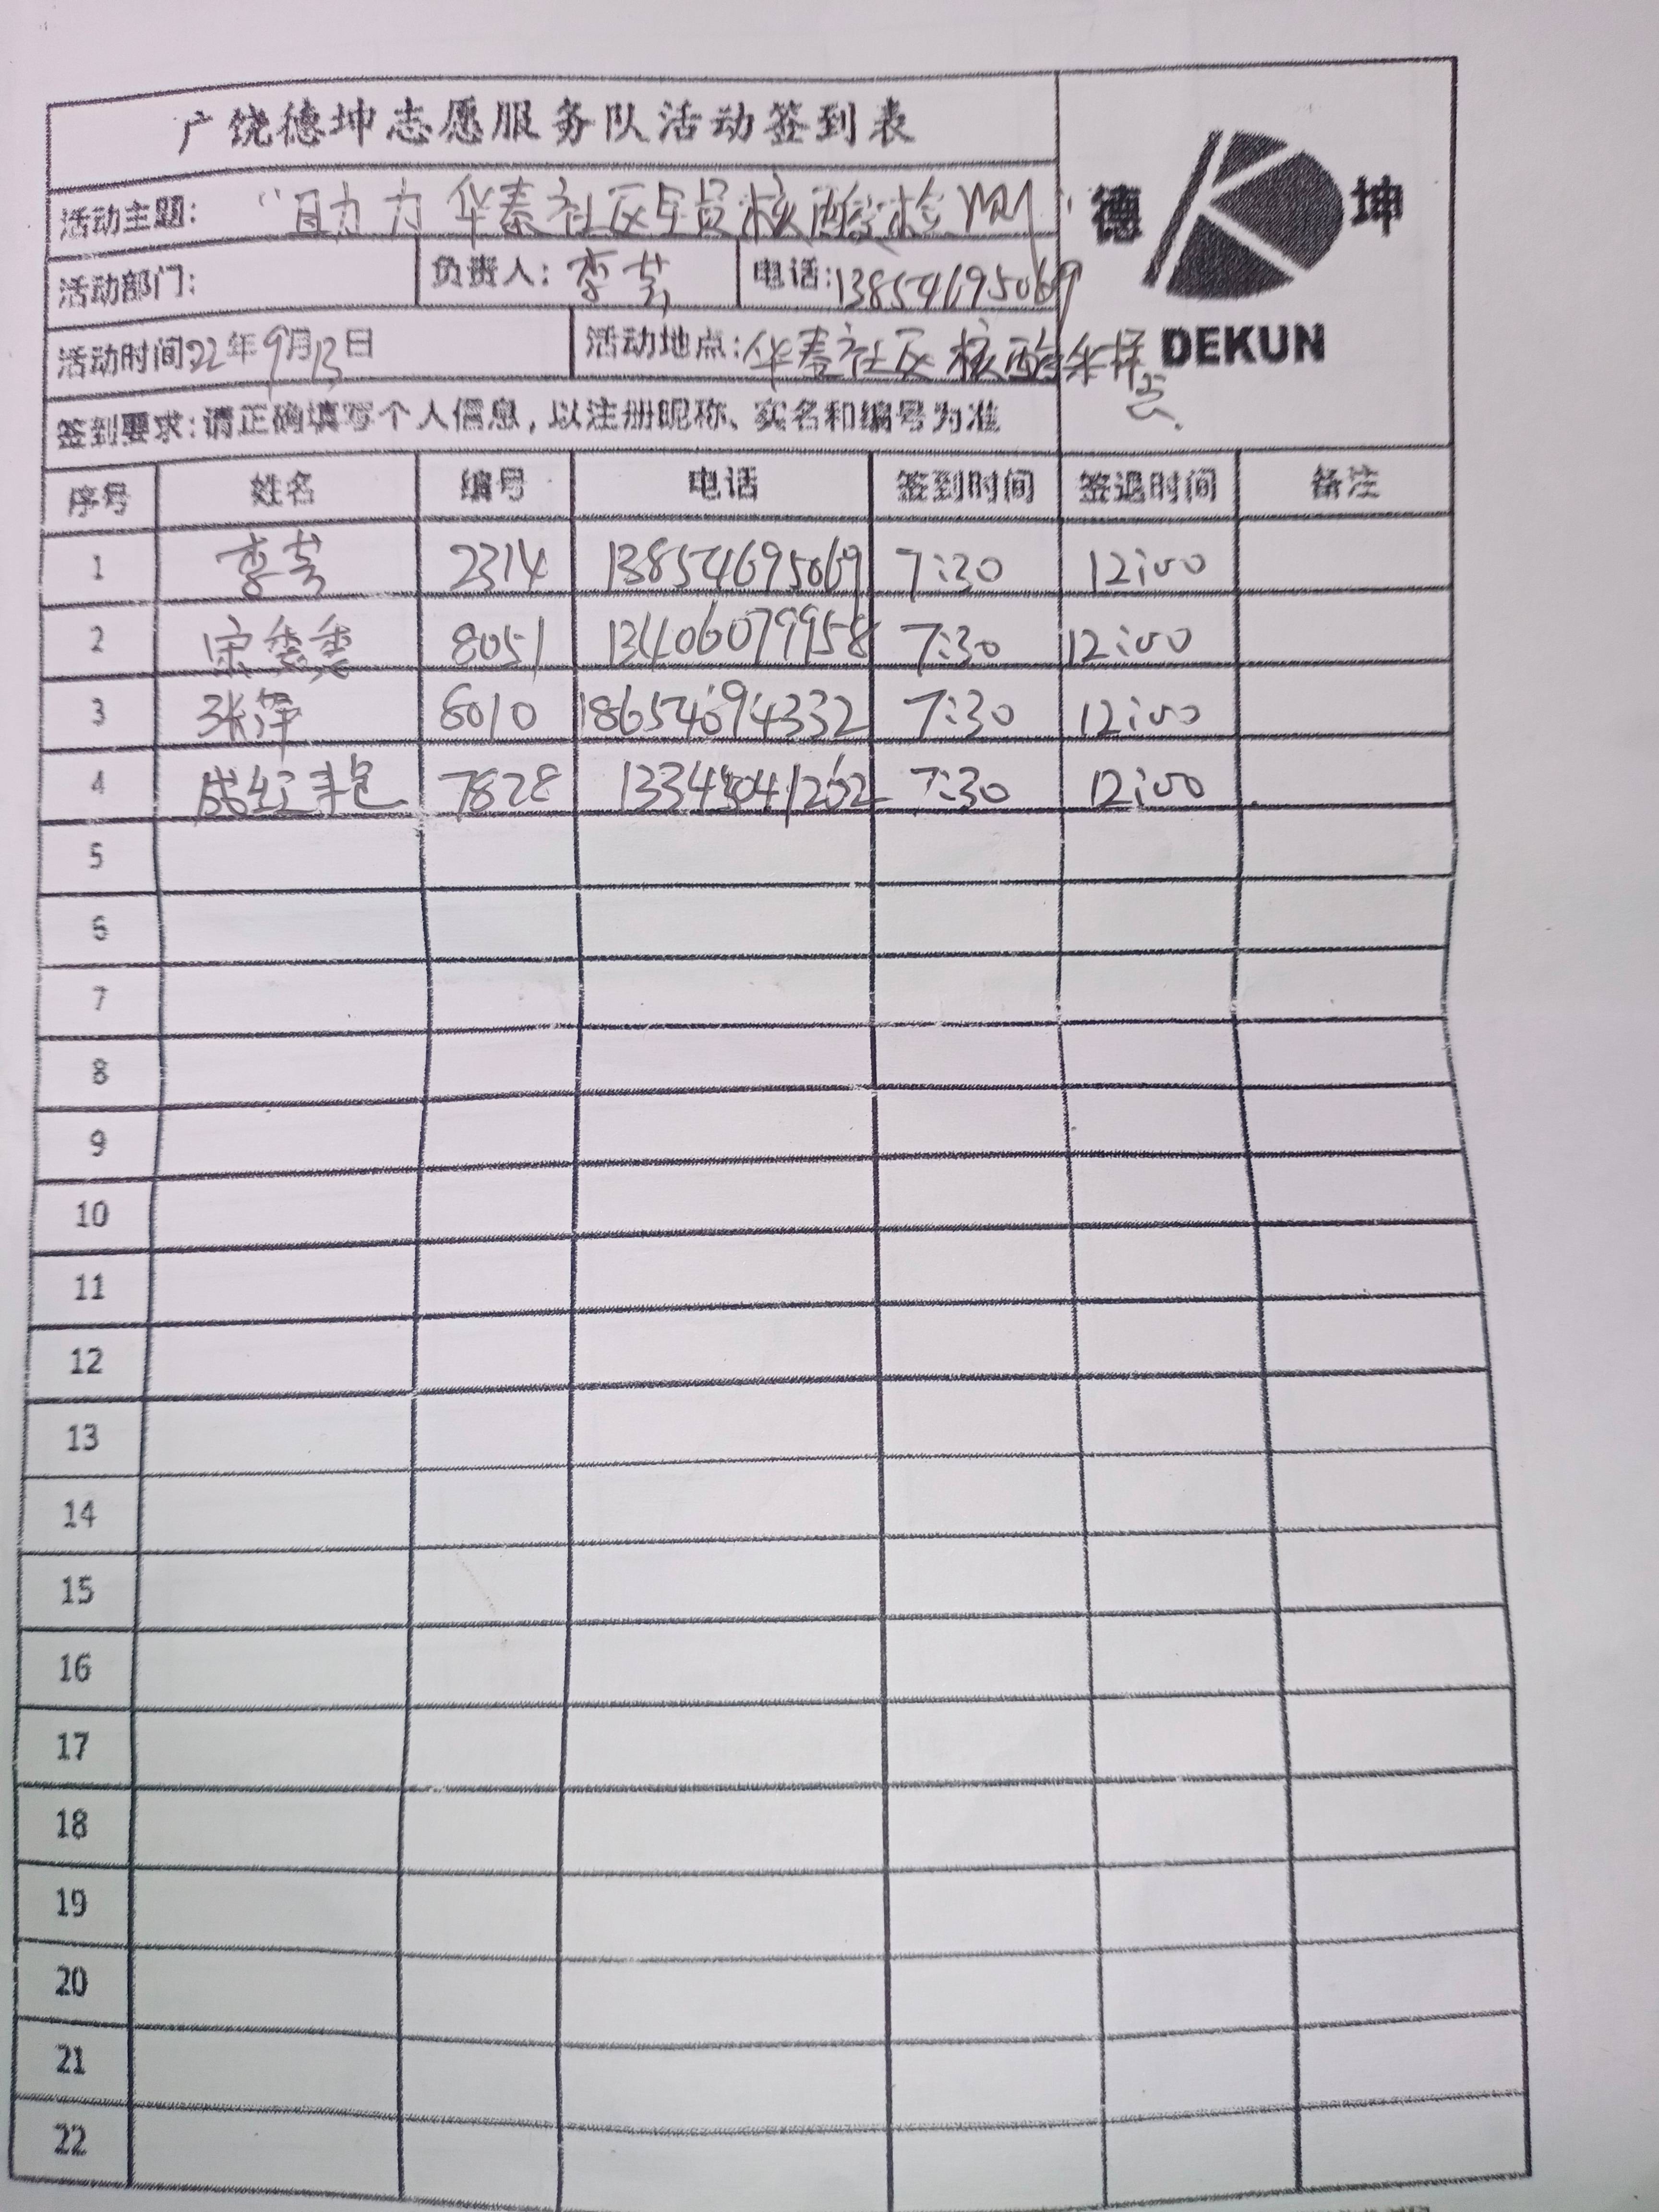 广饶德坤志愿服务队活动签到表
德 坤
DEKUN
活动主题: “助力华泰社区全员核酸检测”
活动部门: 负责人: 李芳 电话: 13854695069
活动时间22年9月13日 活动地点: 华泰社区核酸采样点.
签到要求: 请正确填写个人信息, 以注册昵称、实名和编号为准
序号 姓名 编号 电话 签到时间 签退时间 备注
1 李芳 2314 13854695069 7:30 12:00
2 宋委委 8051 13406079958 7:30 12:00
3 张萍 6010 18654694332 7:30 12:00
4 成红艳 7828 1262 7:30 12:00
5
6
7
8
9
10
11
12
13
14
15
16
17
18
19
20
21
22